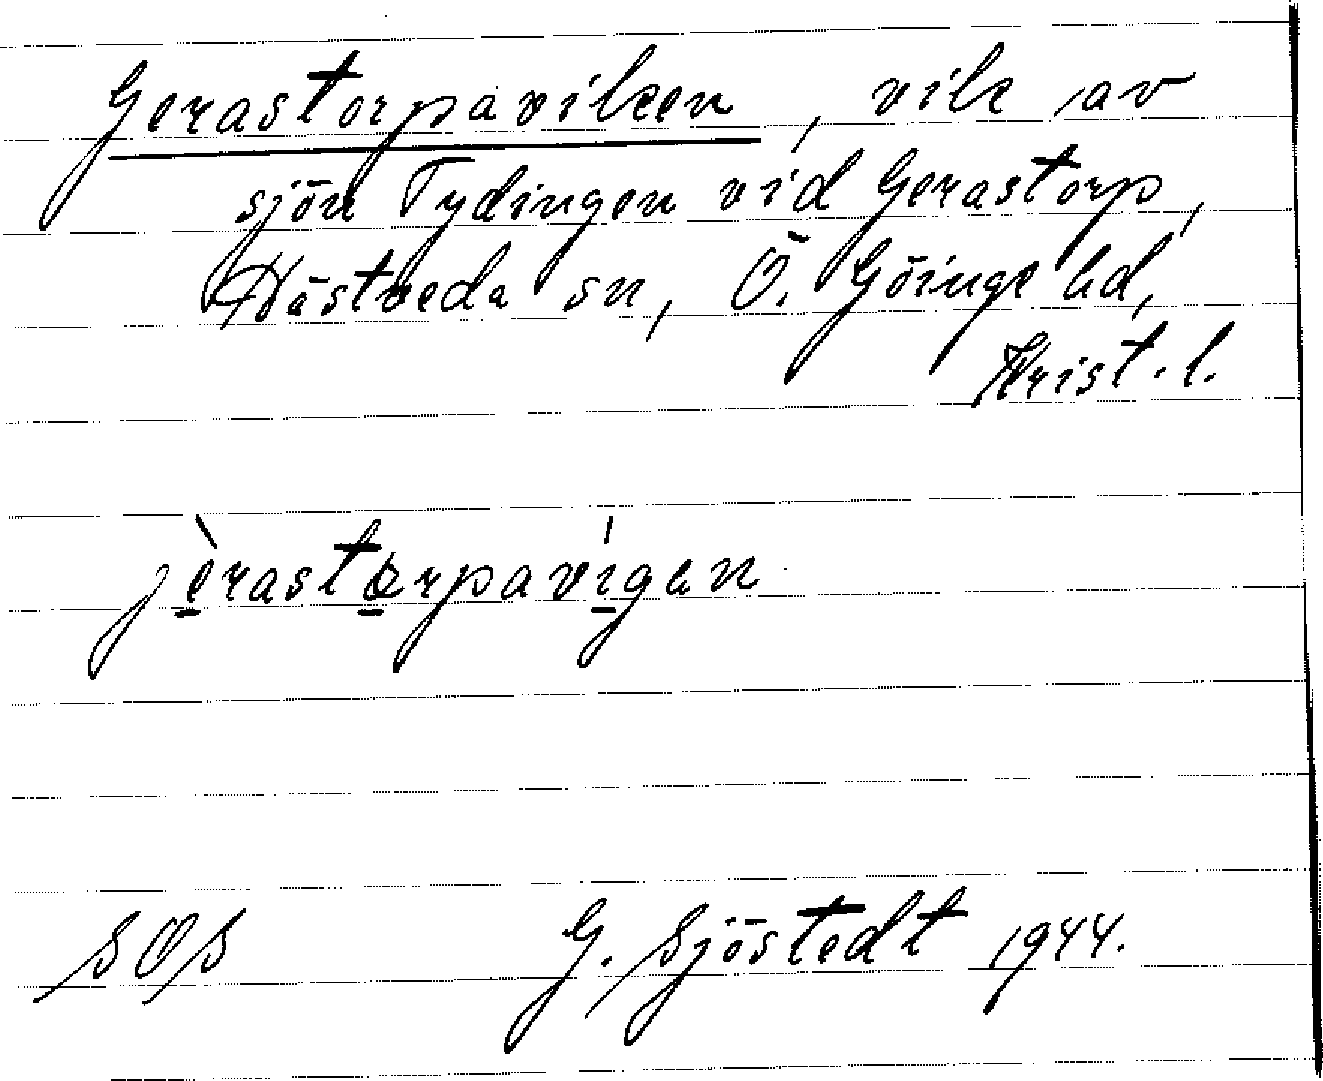 Gerastorpaviken, vik av
sjön Tydingen vid Gerastorp,
Hästveda sn, Ö. Göinge hd,
Krist. l.
jèrastorpavígen
SOS G. Sjöstedt 1944.